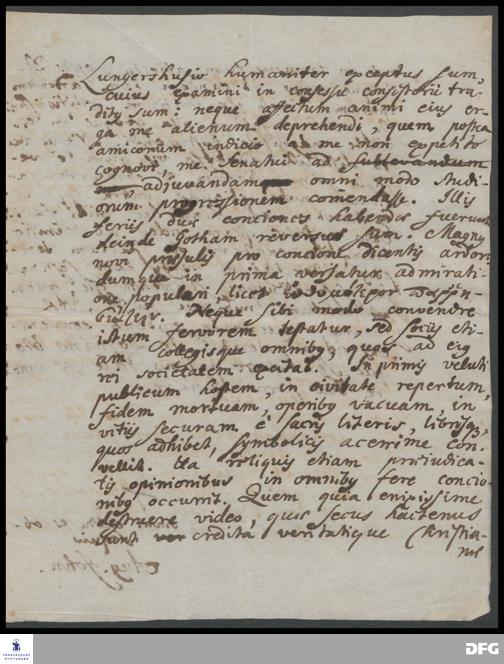 Lungershusio humaniter exceptus sum,
cuius examini in consessu consistorii tra-
ditus sum: neque affectum animi eius er-
ga me alienum deprehendi, quem postea
amicorum indicio a me non expetito
cognovi, me Senatui ad sublevandum
adjuvandam omni modo studi-
orum progressionem comendasse. Illis
feriis duæ conciones habendæ fuerunt
deinde Gotham reversus sum. Magnus
novi præsulis pro concione dicentis ardor
dumque in prima versatur admirati-
one populari, licet
Neque sibi modo convenire
istum fervorem testatur, sed sociis eti-
am collegisque omnibus, quos ad eius
rei societatem excitat. In primis veluti
publicum hostem, in civitate repertum,
fidem mortuam, operibus vacuam, in
vitiis securam e sacris literis, librisque,
quos adhibet, symbolicis acerrime con-
vellit. Ita reliquis etiam præjudica-
tis opinionibus in omnibus fere concio-
nibus occurrit. Quem quia enixissime
destruere video, quæ secus hactenus
sunt credita veritatique Christia-
næ